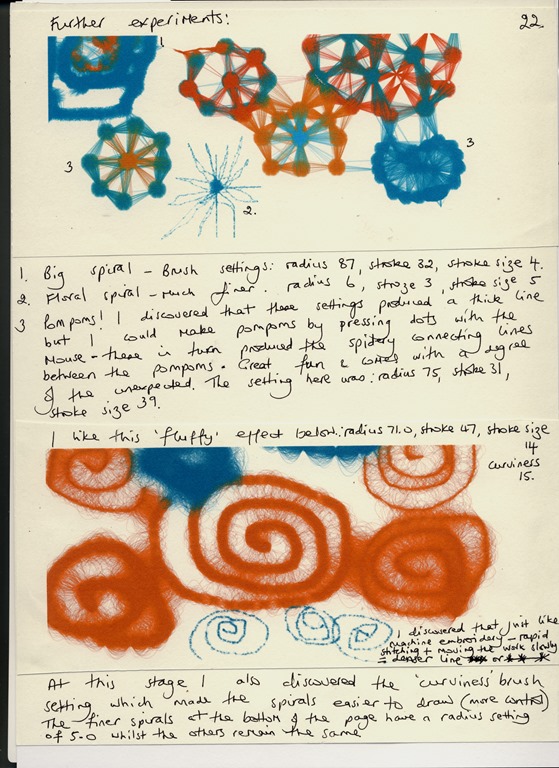 Further experiments:
22.
1.
3
2.
3
1. Big spiral - Brush settings: radius 87, stroke 32, stroke size 4.
2. Floral spiral - much finer. radius 6, stroze 3, stroke size 5
3 Pompoms! I discovered that these settings produced a thick line
but I could make pompoms by pressing dots with the
Mouse - these in turn produced the spidery connecting lines
between the pompoms. Great fun & with a degree
of the unexpected. The setting here was: radius 75, stroke 31,
stroke size 39.
I like this 'fluffy' effect below: radius 71.0, stroke 47, stroke size
14
curviness
15.
I discovered that just like
machine embroidery - rapid
stitching + moving the work slowly
= denser line or
At this stage I also discovered the 'curviness' brush
setting which made the spirals easier to draw (more control)
The finer spirals at the bottom of the page have a radius setting
of 5.0 whilst the others remain the same